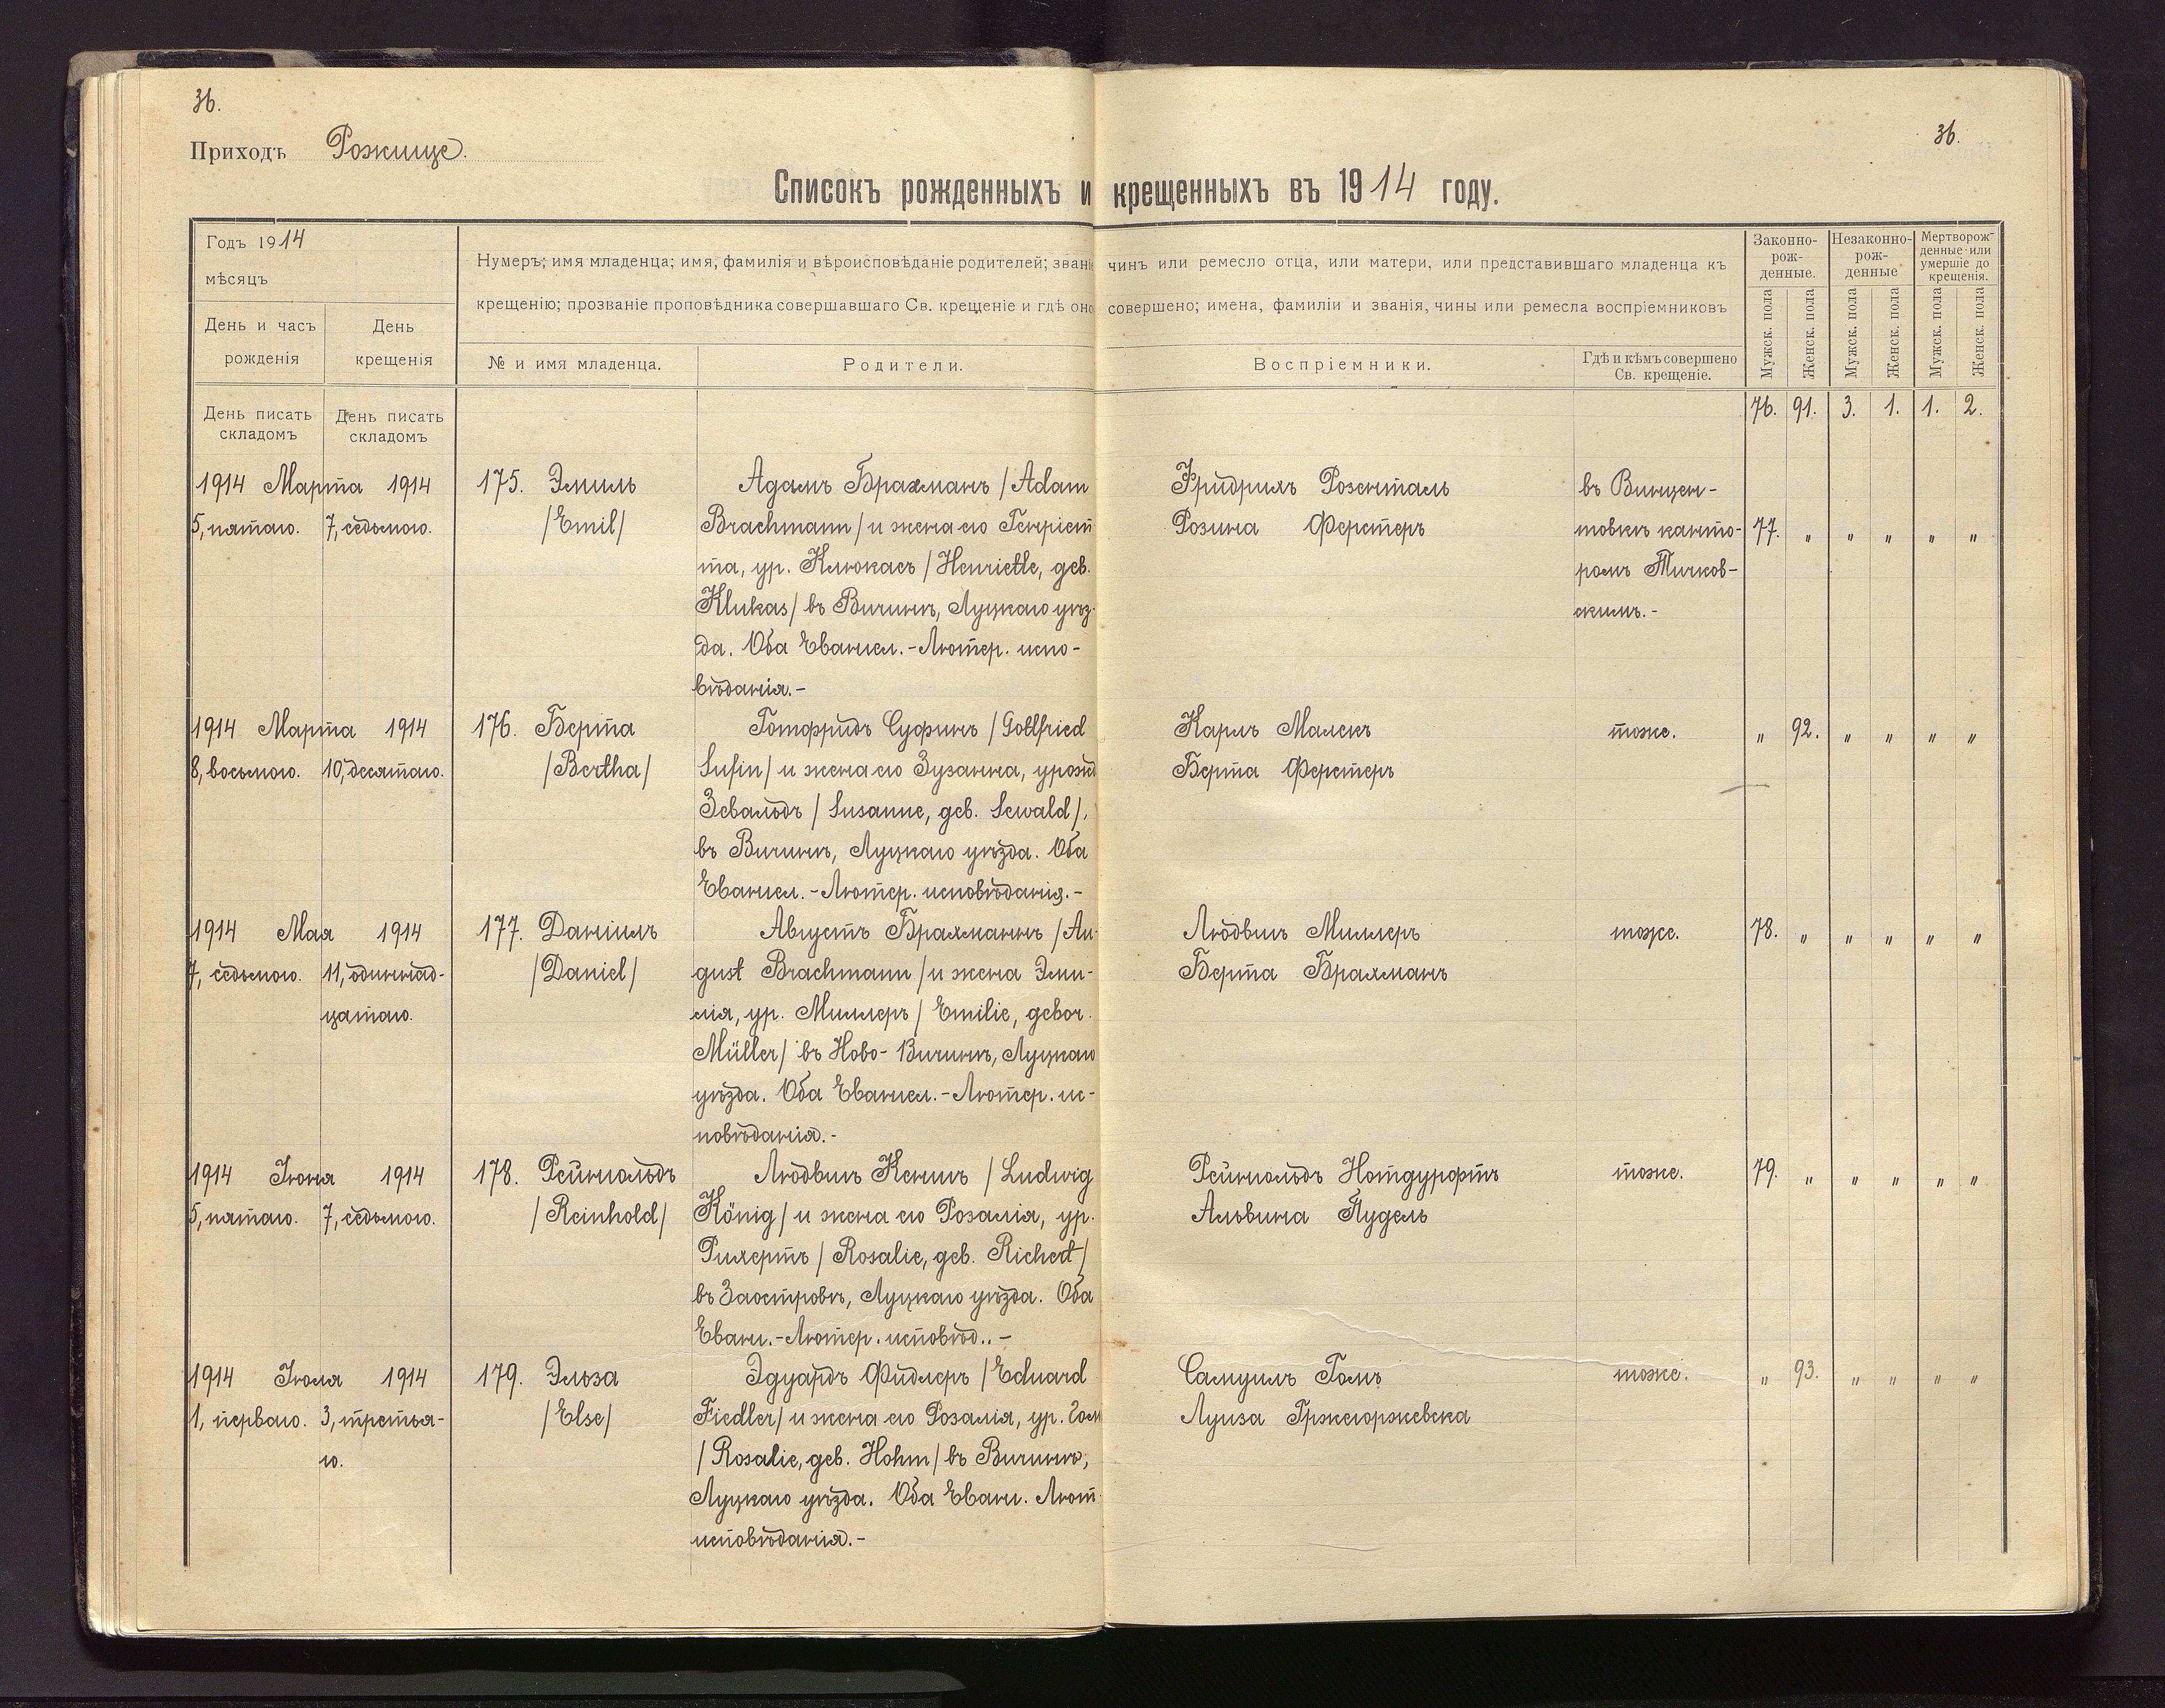 36.
36.
Приходъ Рожище.
Списокъ рожденныхъ и крещенныхъ въ 1914 году.
Годъ 1914
мѣсяцъ
День и часъ рожденія
День крещенія
Нумеръ; имя младенца; имя, фамилія и вѣроисповѣданіе родителей; званіе чинъ или ремесло отца, или матери, или представившаго младенца къ
крещенію; прозваніе проповѣдника совершавшаго Св. крещеніе и гдѣ оно совершено; имена, фамиліи и званія, чины или ремесла воспріемниковъ
№ и имя младенца.
Родители.
Воспріемники.
Гдѣ и кѣмъ совершено
Св. крещеніе.
Законно-
рож-
денные.
Незаконно-
рож-
денные
Мертворож-
денные или
умершіе до
крещенія.
Мужск. пола
Женск. пола
Мужск. пола
Женск. пола
Мужск. пола
Женск. пола
День писать
складомъ
День писать
складомъ
76. 91. 3. 1. 1. 2.
1914 Марта 1914
5, пятаго. 7, седьмого.
175. Эмиль
/Emil/
Адамъ Брахманъ /Adam
Brachmann/ и жена его Генріет
та, ур. Клюкасъ /Henriette, geb.
Klukas/ въ Вичинѣ, Луцкаго уѣз-
да. Оба Евангел.-Лютер. испо-
вѣданія.-
Фридрихъ Розенталь
Розина Ферстеръ
въ Винцен-
товкѣ канто-
ромъ Тичков-
скимъ.-
77. " " " " "
1914 Марта 1914
8, восьмого. 10, десятаго.
176. Берта
/Bertha/
Готфридъ Суфинъ /Gottfried
Sufin/ и жена его Зузанна, урожд
Зевальдъ /Susanne, geb. Sewald/,
въ Вичинѣ, Луцкаго уѣзда. Оба
Евангел.-Лютер. исповѣданія.-
Карлъ Малекъ
Берта Ферстеръ
тоже.
" 92. " " " "
1914 Мая 1914
7, седьмого. 11, одиннад-
цатаго.
177. Даніилъ
/Daniel/
Августъ Брахманнъ /Au-
gust Brachmann/ и жена Эми-
лія, ур. Миллеръ /Emilie, gebor.
Müller/ въ Ново-Вичинѣ, Луцкаго
уѣзда. Оба Евангел.-Лютер. ис-
повѣданія.-
Людвигъ Миллеръ
Берта Брахманъ
тоже.
78. " " " " "
1914 Іюня 1914
5, пятаго. 7, седьмого.
178. Рейнгольдъ
/Reinhold/
Людвигъ Кенигъ /Ludwig
König/ и жена его Розалія, ур.
Рихертъ /Rosalie, geb. Richert/
въ Заостровѣ, Луцкаго уѣзда. Оба
Еванг.-Лютер. исповѣд..-
Рейнгольдъ Нотдурфтъ
Альвина Пудель
тоже.
79. " " " " "
1914 Іюля 1914
1, перваго. 3, третья-
го.
179. Эльза
/Else/
Эдуардъ Фидлеръ /Eduard
Fiedler/ и жена его Розалія, ур. Гом
/Rosalie, geb. Hohm/ въ Вичинѣ,
Луцкаго уѣзда. Оба Еванг. Лют
исповѣданія.-
Самуилъ Гомъ
Луиза Гржегоржевска
тоже.
" 93. " " " "